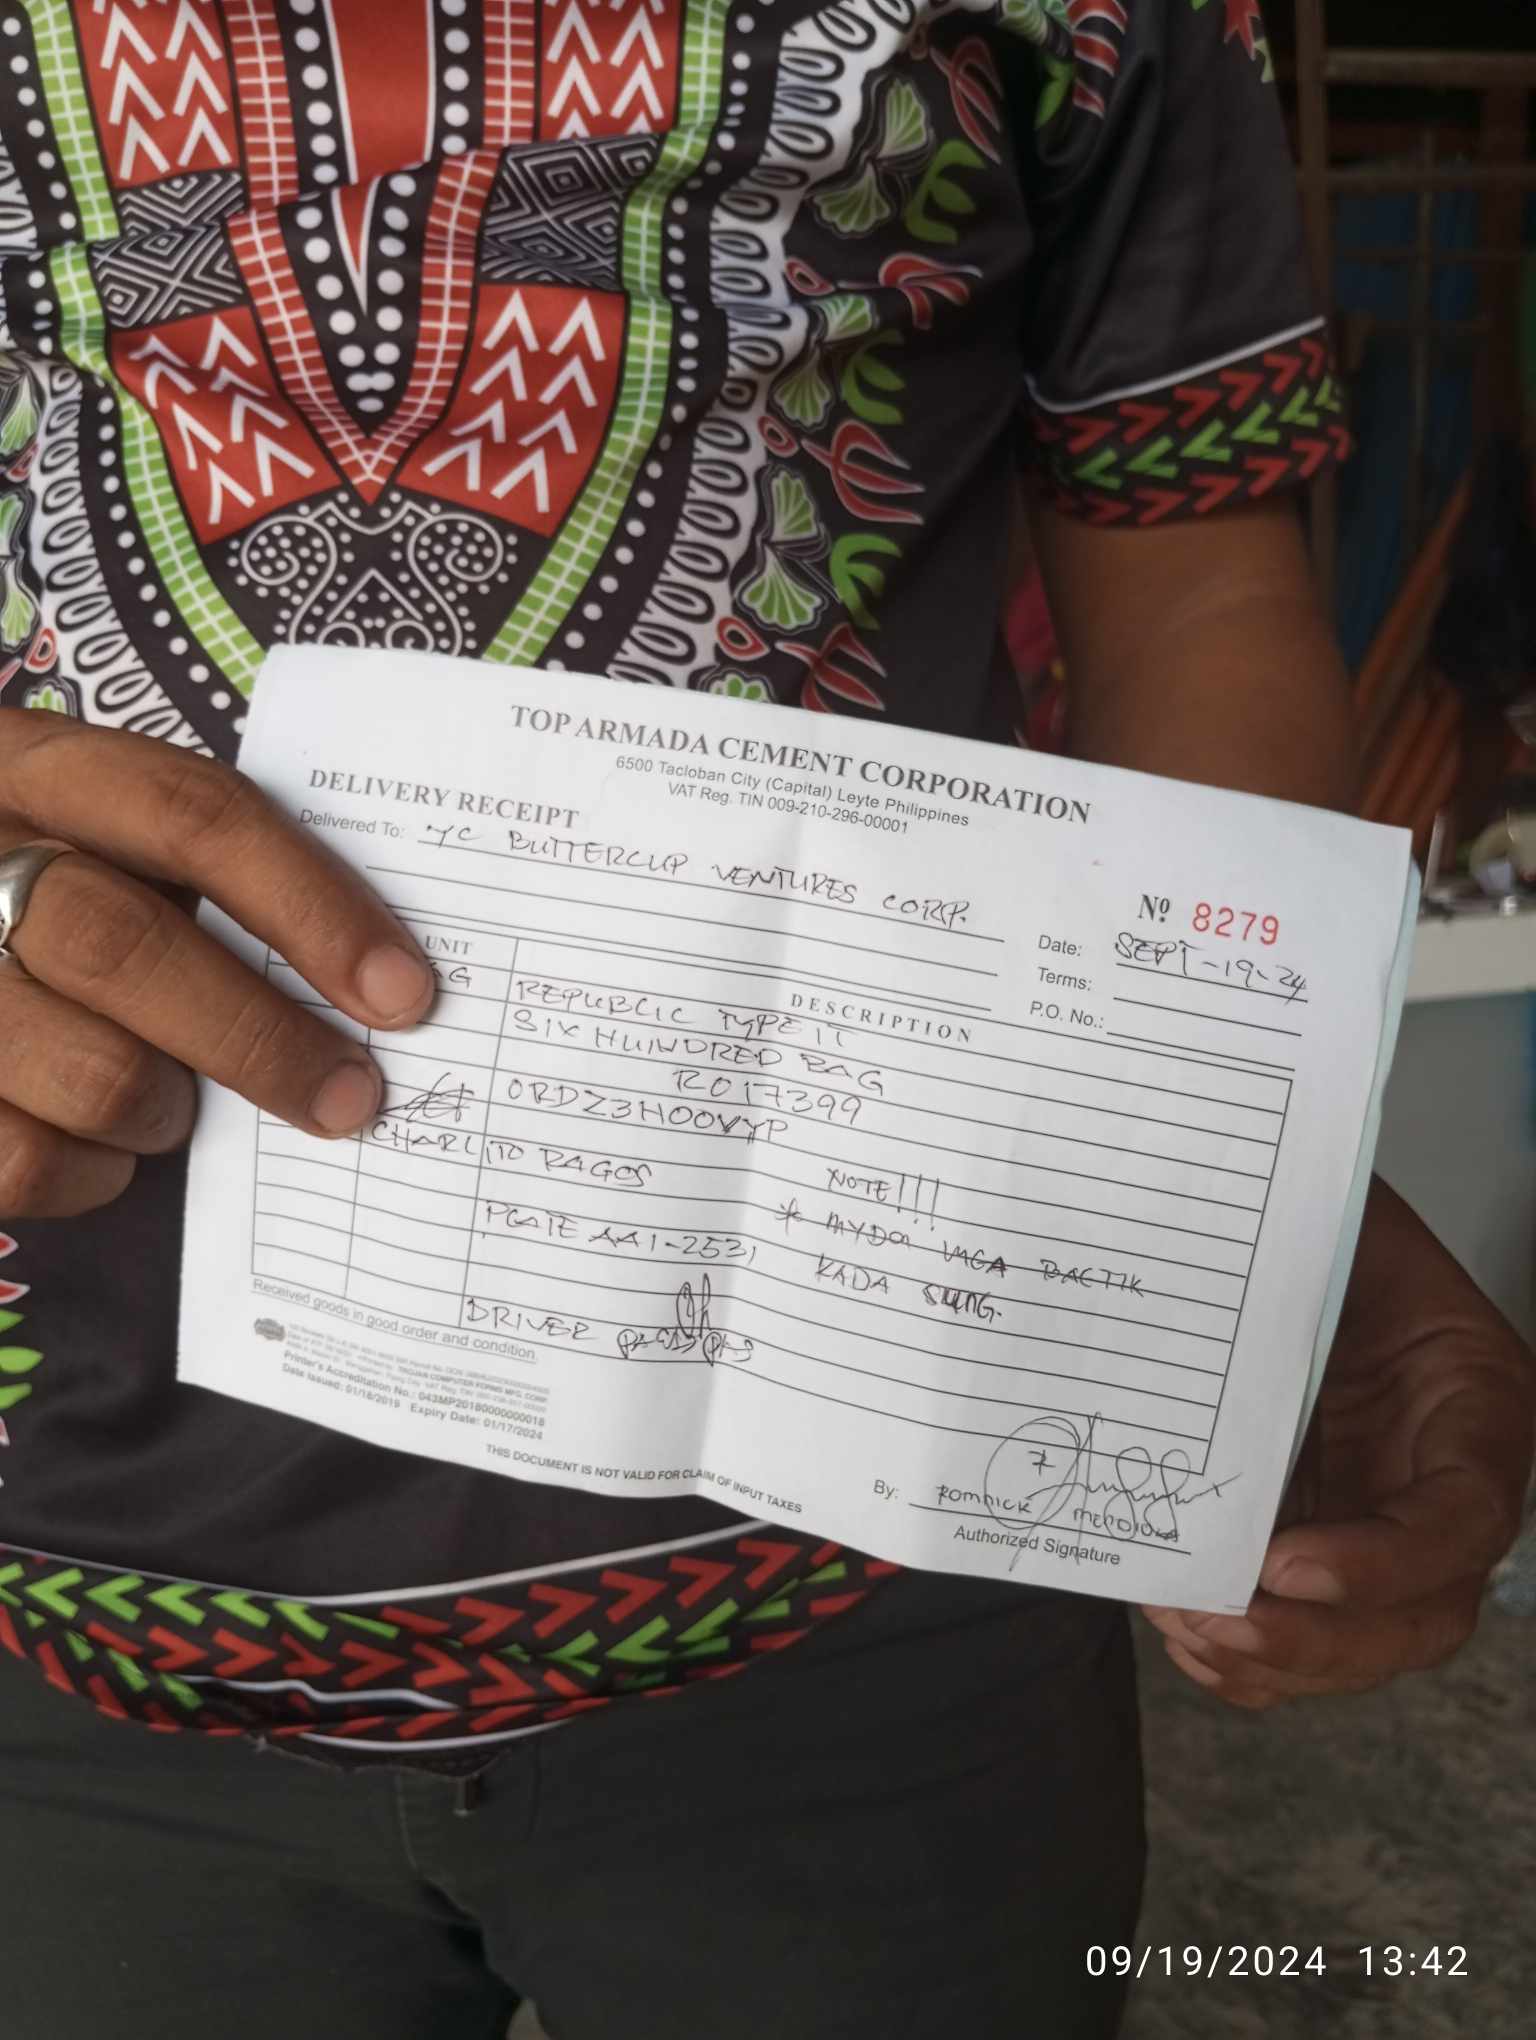 TOP ARMADA CEMENT CORPORATION
6500 Tacloban City (Capital) Leyte Philippines
VAT Reg. TIN 009-210-296-00001
DELIVERY RECEIPT
Delivered To: YC BUTTERCUP VENTURES CORP.
Nº 8279
Date: SEPT-19-24
Terms:
P.O. No.:
UNIT DESCRIPTION
AG REPUBLIC TYPE 1T
SIX HUNDRED BAG
R017399
ORDZ3HOOVYP
CHARLITO RAGOS
NOTE!!!
PLATE AA1-2531
KADA
DRIVER
Received goods in good order and condition.
TROJAN COMPUTER FORMS MFG. CORP.
Printer's Accreditation No.: 043MP20180000000018
Date Issued: 01/18/2019 Expiry Date: 01/17/2024
THIS DOCUMENT IS NOT VALID FOR CLAIM OF INPUT TAXES
By: ROMNICK
Authorized Signature
09/19/2024 13:42